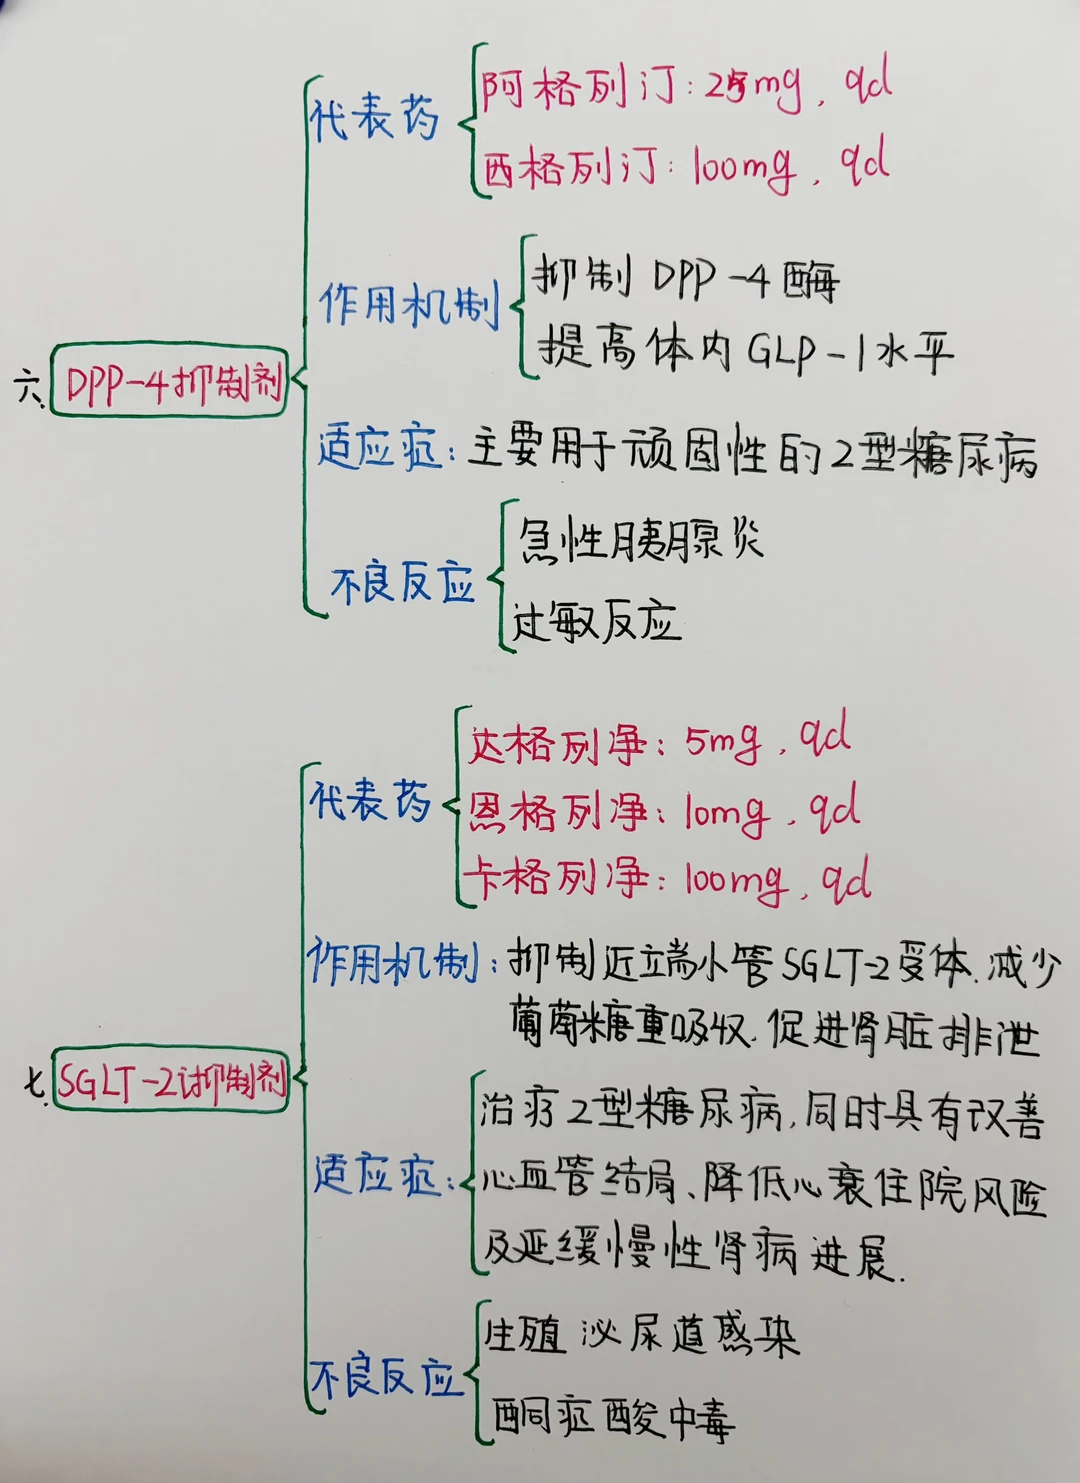 代表药
阿格列汀：25mg，qd
西格列汀：100mg，qd
作用机制
抑制DPP-4酶
提高体内GLP-1水平
六.
DPP-4抑制剂
适应症：主要用于顽固性的2型糖尿病
不良反应
急性胰腺炎
过敏反应
代表药
达格列净：5mg，qd
恩格列净：10mg，qd
卡格列净：100mg，qd
作用机制：抑制近端小管SGLT-2受体.减少
葡萄糖重吸收.促进肾脏排泄
七.
SGLT-2抑制剂
适应症：
治疗2型糖尿病,同时具有改善
心血管结局、降低心衰住院风险
及延缓慢性肾病进展.
不良反应
生殖泌尿道感染
酮症酸中毒